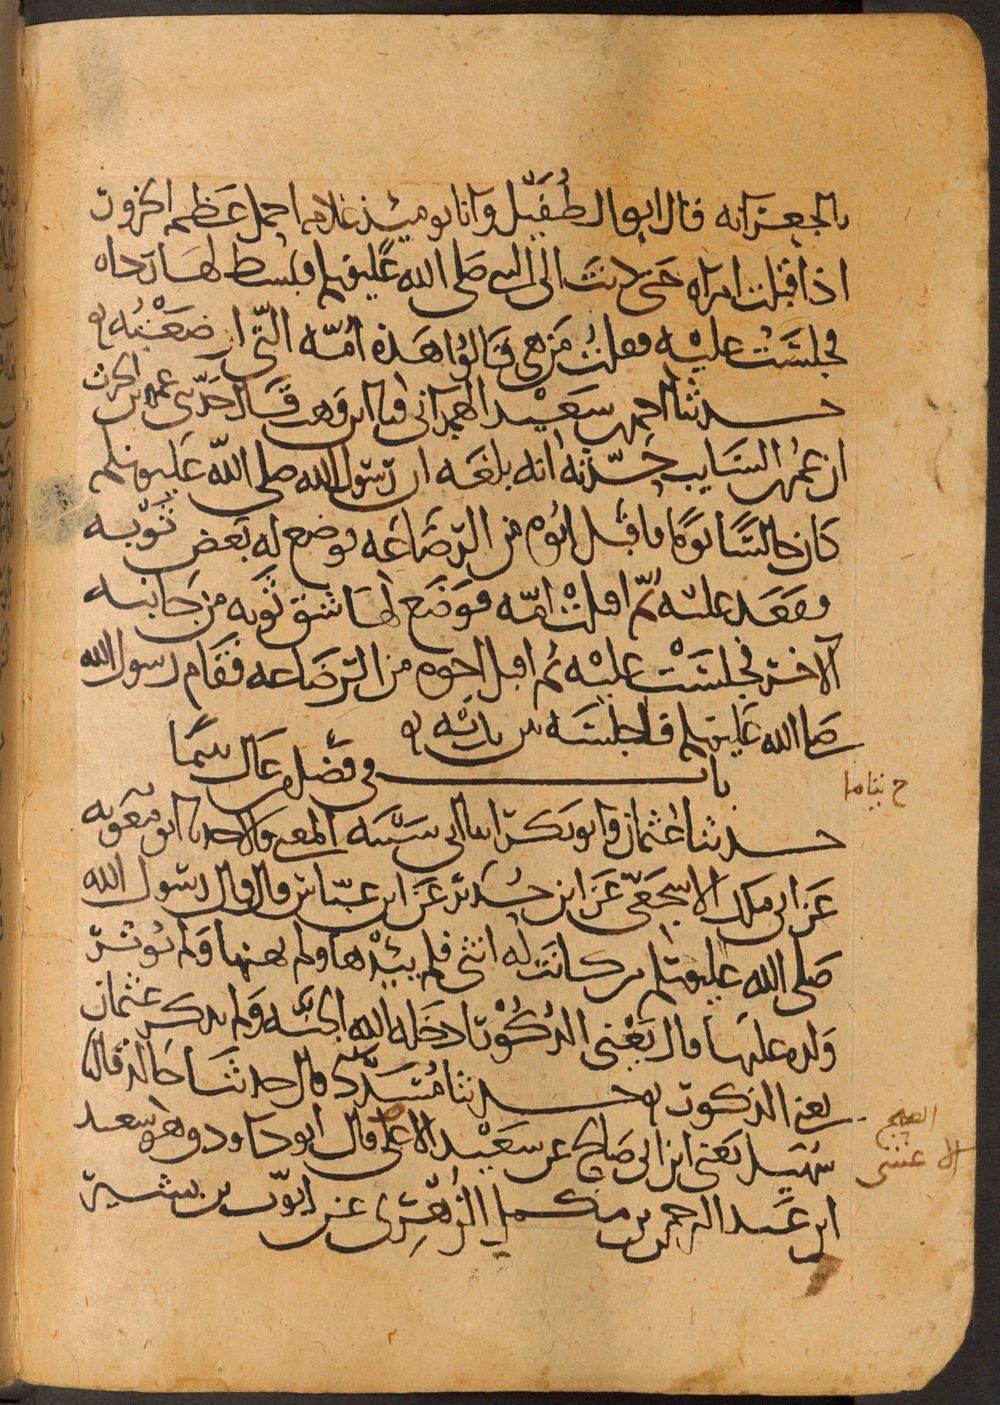 بالجعرانة قال ابو الطفيل وانا يوميذ غلام احمل عظم الجزور
اذ اقبلت امراه حتى دنت الى النبي صلى الله عليه وسلم فبسط لها رداه
فجلست عليه فقلت من هي قالوا هذه امه التي ارضعته
حدثنا احمد بن سعيد الهمداني نا ابن وهب قال حدثني عمرو بن الحرث
ان عمر بن السايب حدثه انه بلغه ان رسول الله صلى الله عليه وسلم
كان جالسا يوما فاقبل ابوه من الرضاعه فوضع له بعض ثوبه
فقعد عليه ثم اقبلت امه فوضع لها شق ثوبه من جانبه
الاخر فجلست عليه ثم اقبل اخوه من الرضاعه فقام رسول الله
صلى الله عليه وسلم فاجلسه بين يديه
باب في فضل من عال يتيما
حدثنا عثمان وابو بكر ابنا ابي شيبه المعنى قالا حدثنا ابو معويه
عن ابي ملك الاشجعي عن ابن حدير عن ابن عباس قال قال رسول الله
صلى الله عليه وسلم من كانت له انثى فلم يئدها ولم يهنها ولم يوثر
ولده عليها قال يعني الذكور ادخله الله الجنه ولم يذكر عثمان
يعني الذكور حدثنا مسدد قال حدثنا خالد قال نا
سهيل يعني ابن ابي صالح عن سعيد الاعشى قال ابو داود وهو سعيد
ابن عبد الرحمن بن مكمل الزهري عن ايوب بن بشير